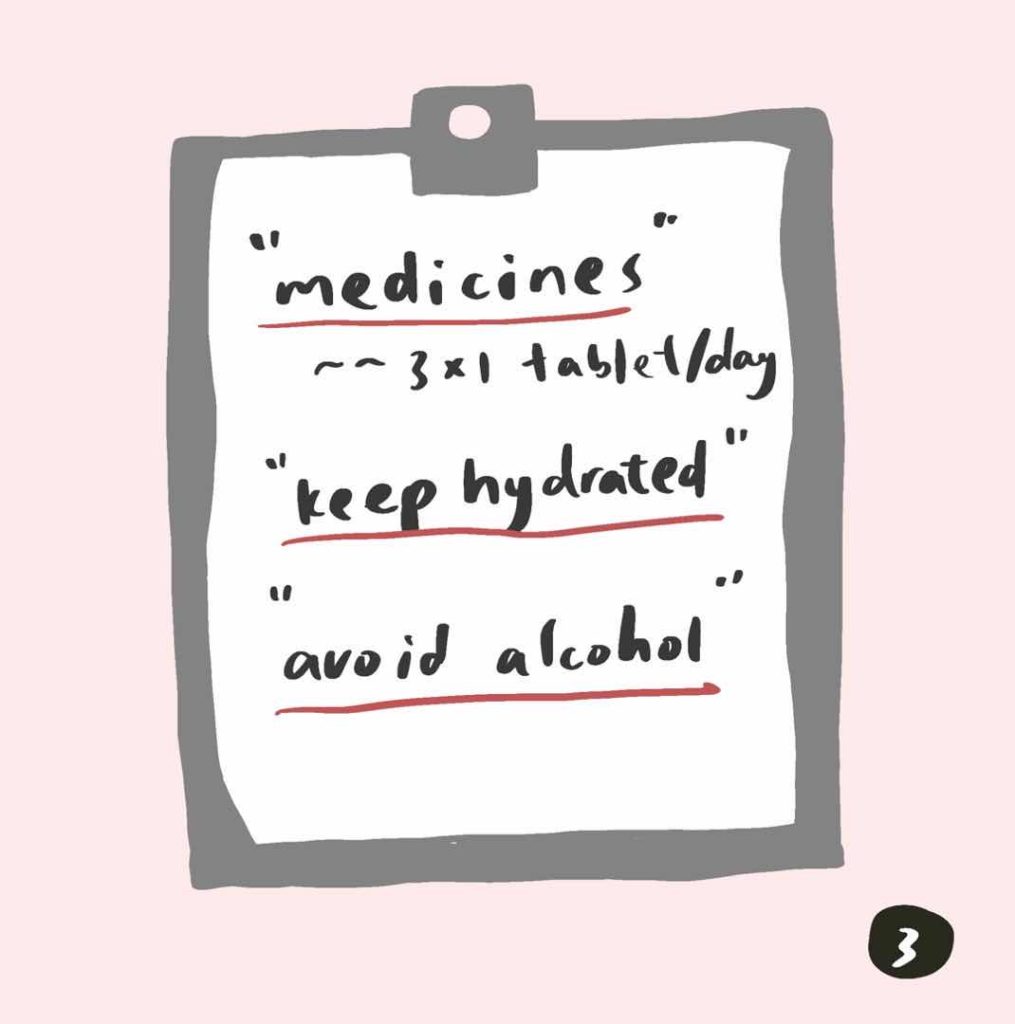 "medicines"
~~ 3x1 tablet/day
"keep hydrated"
"avoid alcohol"
3